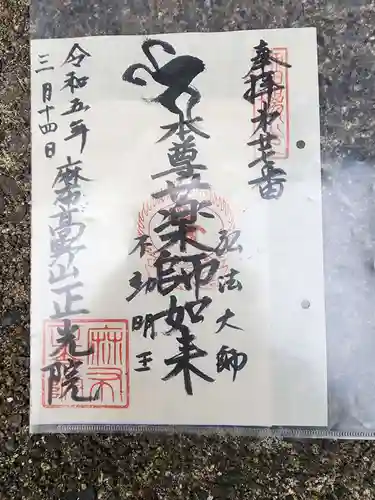 奉拝 第廿七番
本尊薬師如来
弘法大師
不動明王
令和五年
三月十四日
麻布高野山正光院